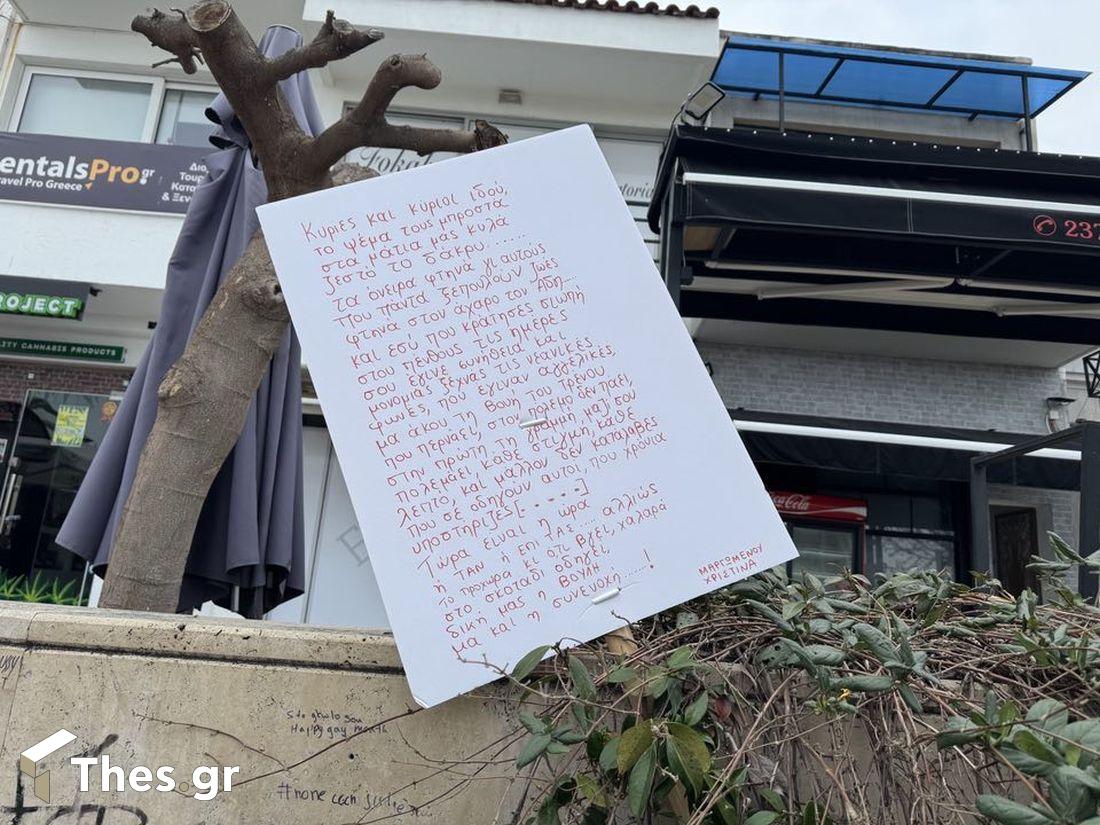 Κυριες και κύριοι ιδού,
το ψέμα τους μπροστά
στα μάτια μας κυλά
ζεστό το δάκρυ.......
τα όνειρα φτηνά γι αυτούς
που πάντα ξεπουλούν ζωές
φτηνά στον άχαρο τον Άδη...
και εσύ που κράτησες σιωπή
στου πείθους τις ημέρες
σου έγινε συνήθεια και
μονομιάς ξέχνας τις νεανικές
φωνές, που έγιναν αγγελικές,
μα άκου, τη βουή του τρένου
που περνάει, στον πόλεμο δεν πάει,
στην πρώτη τη γραμμή μαζί σου
πολεμάει, κάθε στιγμή, κάθε
λεπτό, και μάλλον δεν κατάλαβες
που σέ οδηγούν αυτοί, που χρόνια
υποστηρίζεις [- - - -]
Τώρα είναι η ώρα
ή ΤΑΝ ή επι Τας..... αλλιώς
το προχωρα κι ότι βγει, χαλαρά
στο σκοτάδι οδηγεί,
δική μας η βουλή
μα και η συνενοχή.....!
ΜΑΡΓΩΜΕΝΟΥ
ΧΡΙΣΤΙΝΑ
entalsPro.gr
ravel Pro Greece
Διο
Τουρ
Κατα
& Ξεν
ROJECT
ITY CANNABIS PRODUCTS
237
Coca-Cola
Sto gkwlo sou
Happy gay month
#none
Thes.gr